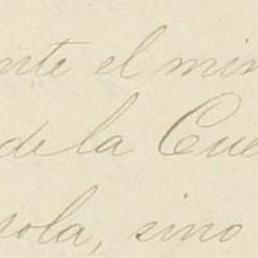 nte el min
de la Cue
sola, sino